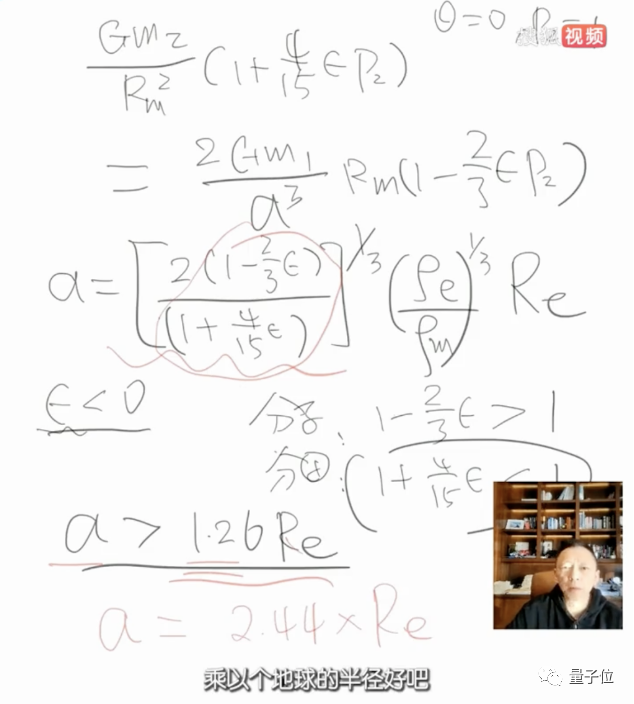 θ=0 P=1
搜狐视频
Gm₂/Rm² (1+4/15 ε P₂)
= 2Gm₁/a³ Rm(1-2/3 ε P₂)
a=[2(1-2/3 ε)/(1+4/15 ε)]^1/3 (ρe/ρm)^1/3 Re
ε<0 分子: 1-2/3 ε > 1
分母: (1+4/15 ε < 1
a > 1.26Re
a = 2.44×Re
乘以个地球的半径好吧
量子位